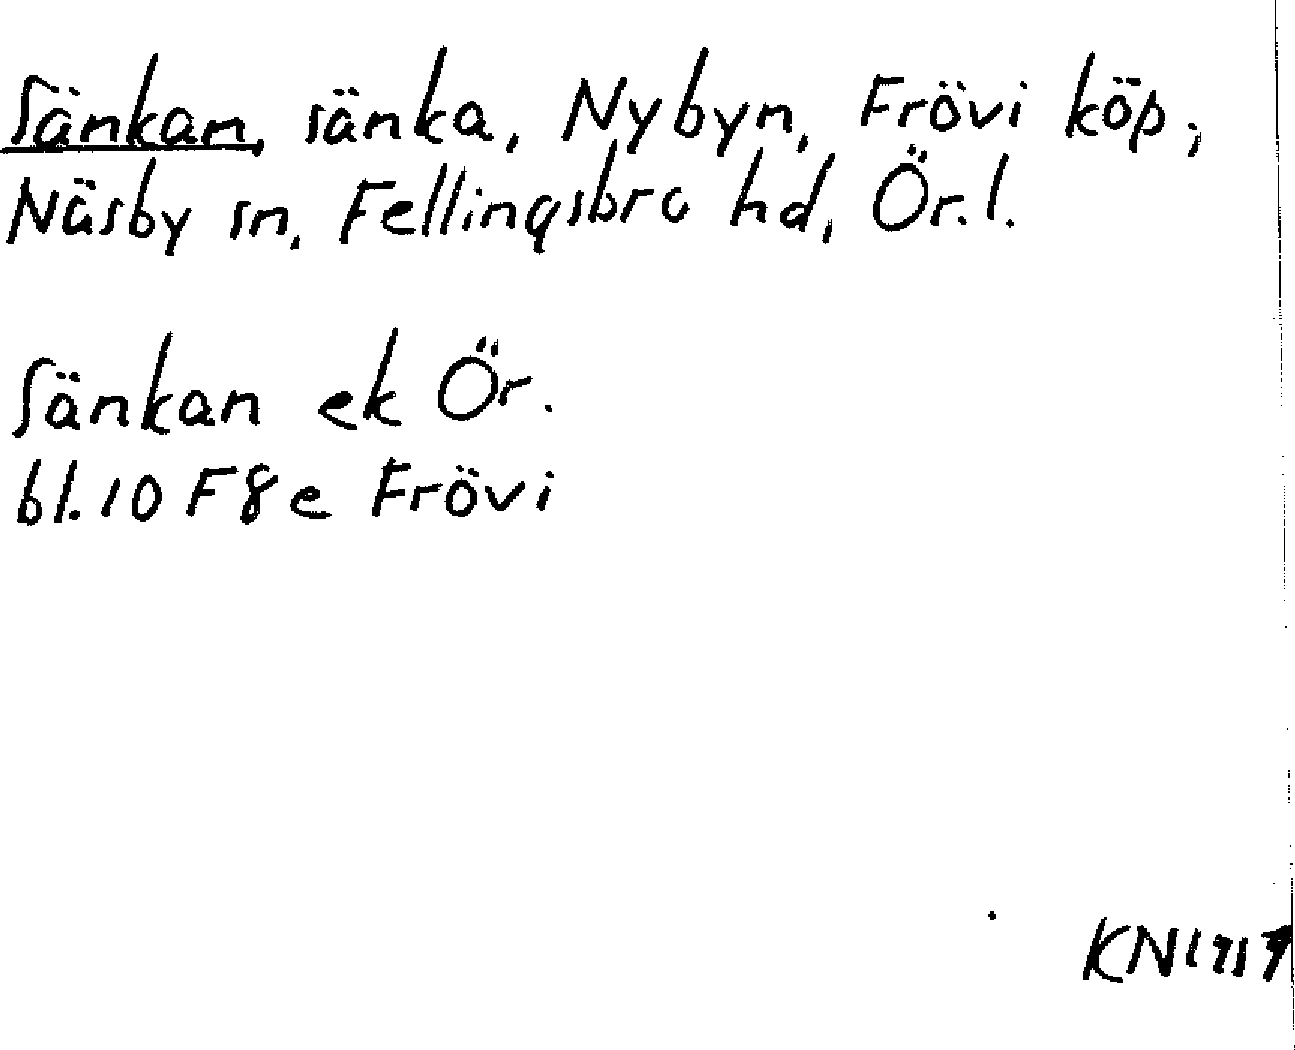 Sänkan, sänka, Nybyn, Frövi köp,
Näsby sn, Fellingsbro hd, Ör.l.
Sänkan ek Ör.
bl. 10 F 8 e Frövi